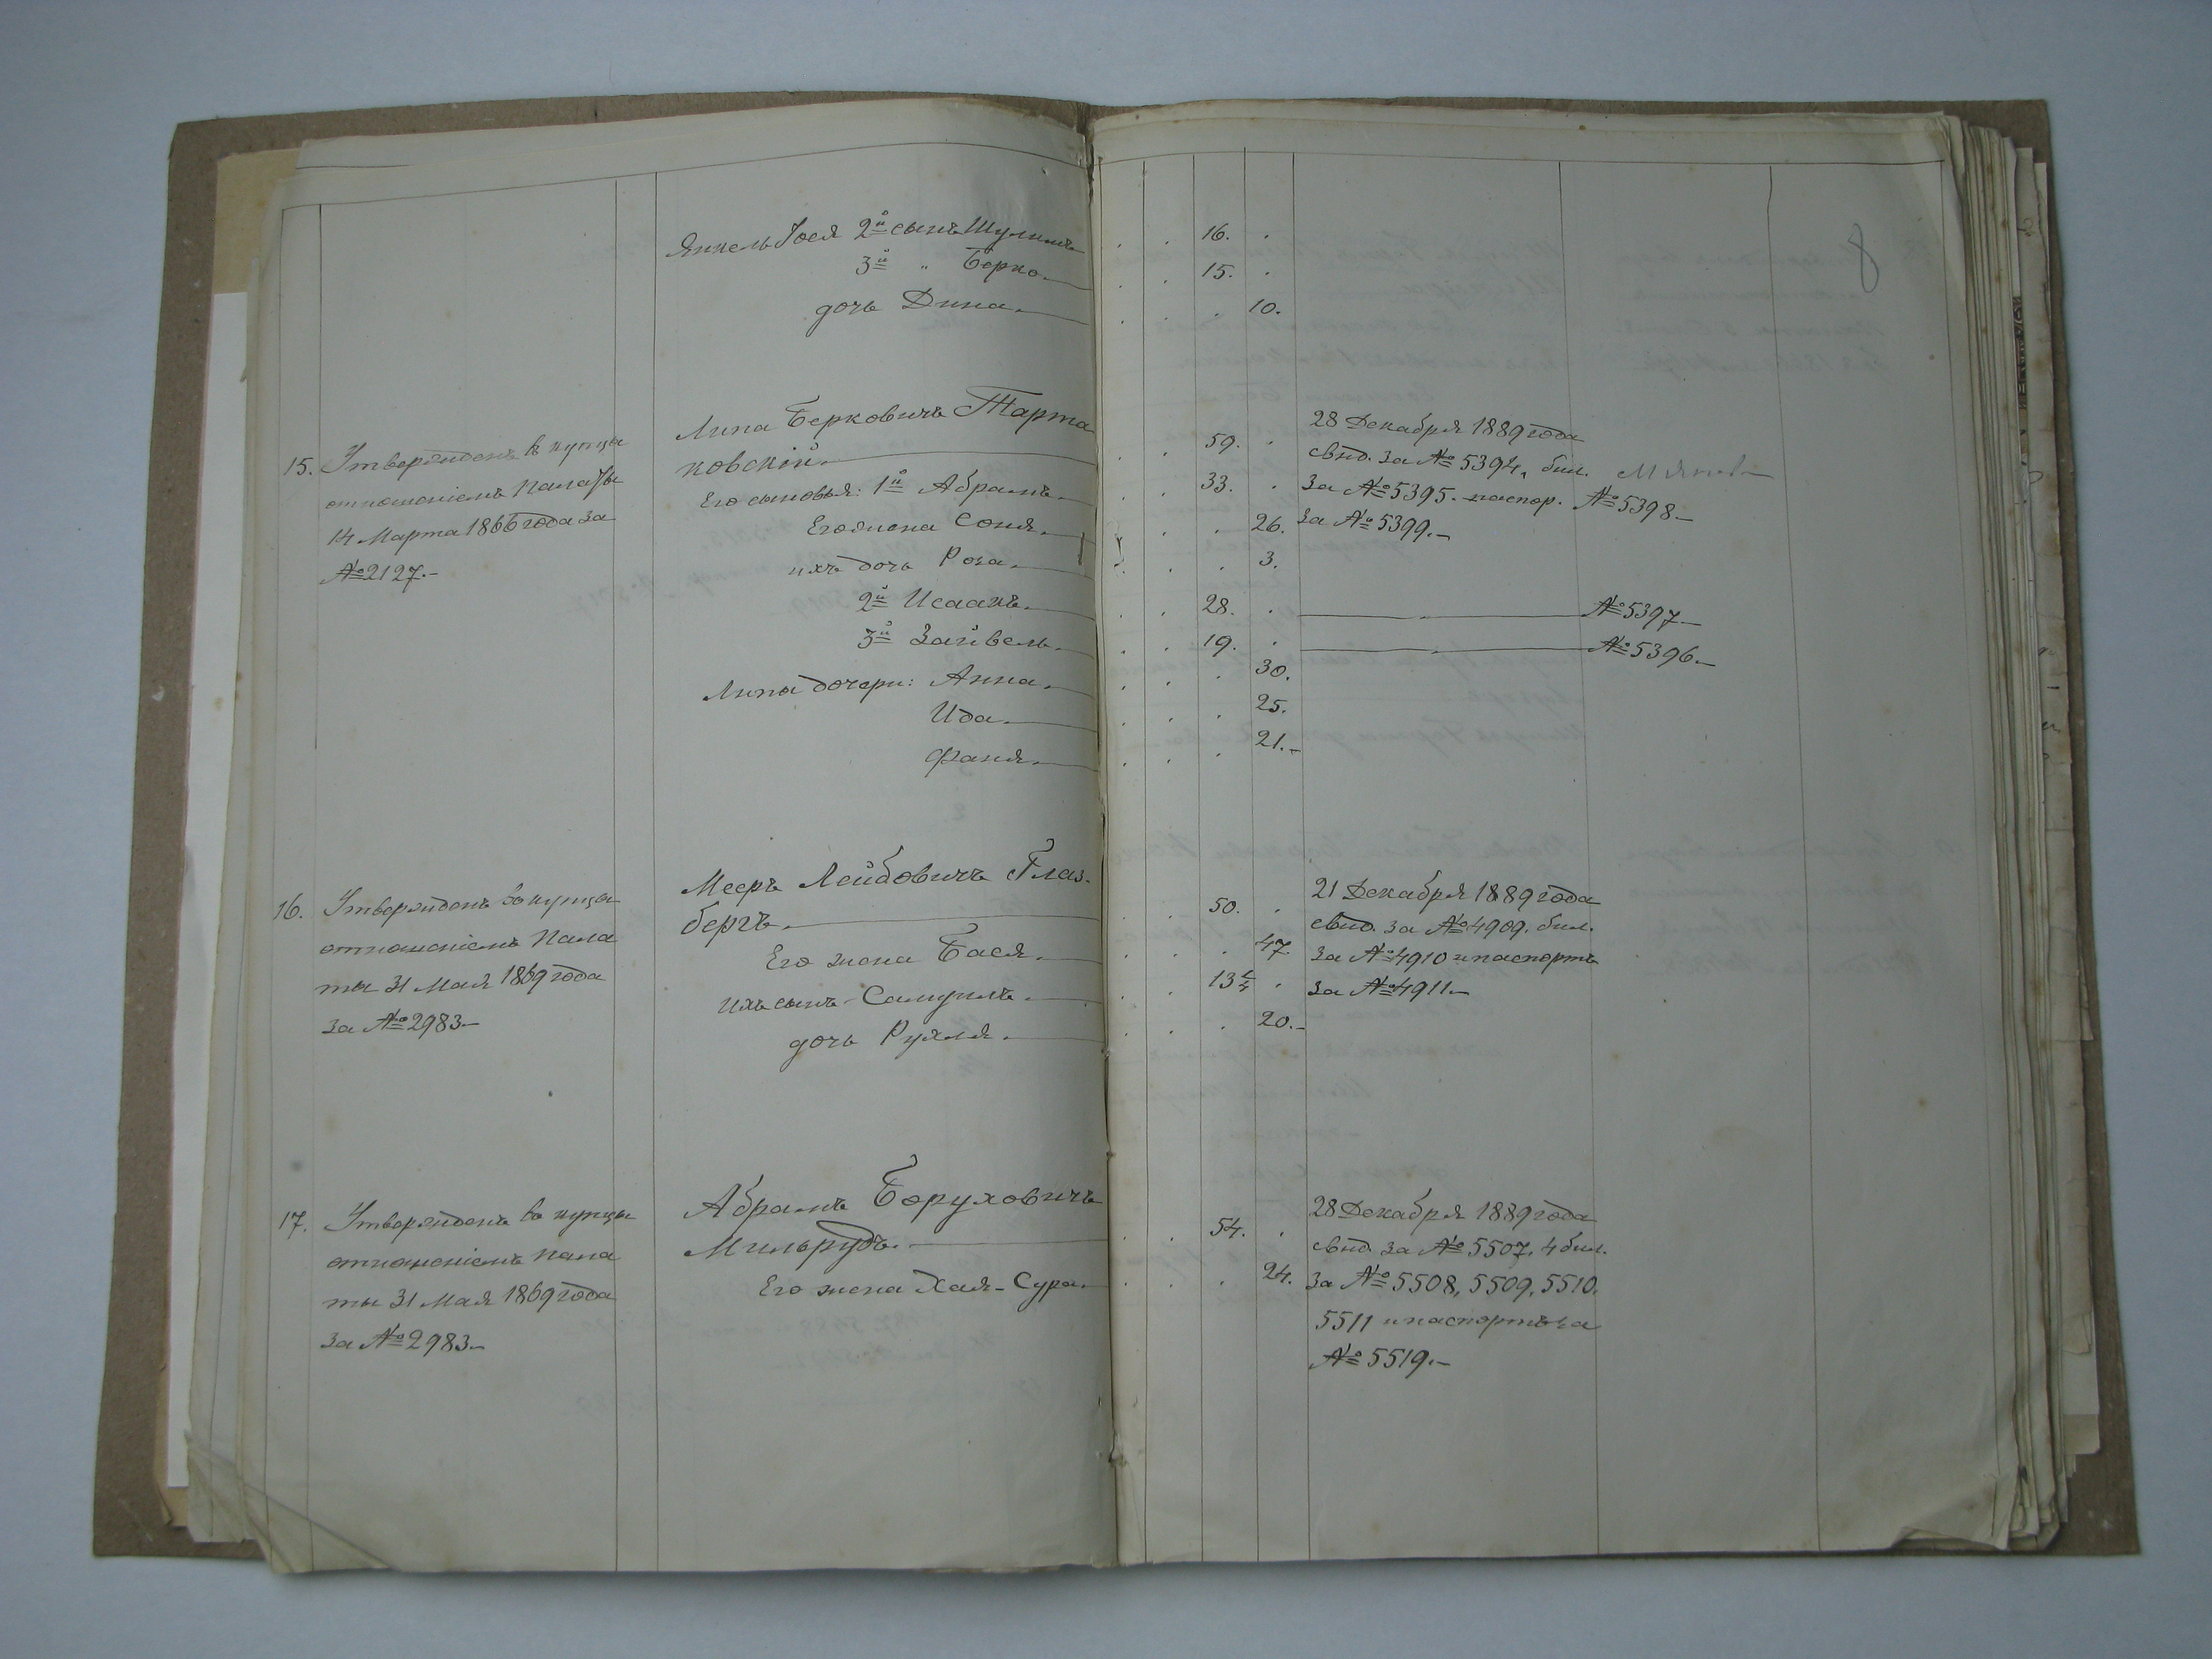 8
Янкель Іося 2й сынъ Шулимъ 16.
3й " Берко 15.
дочь Дина. 10.
Липа Берковичъ Тарта
ковскій. 59.
15. Утвержденъ въ купцы
отношеніемъ Палаты
14 Марта 1866 года за
№ 2127.-
Его сыновья: 1й Абрамъ. 33.
Его жена Соня. 26.
ихъ дочь Роза. 3.
2й Исаакъ. 28.
3й Зайвель. 19.
Липы дочери: Анна. 30.
Ида. 25.
Фаня. 21.-
28 Декабря 1889 года
свид. за № 5394, бил.
за № 5395. паспор. № 5398-
за № 5399.-
№ 5397-
№ 5396.-
16. Утвержденъ въ купцы
отношеніемъ Пала
ты 31 Мая 1869 года
за № 2983-
Мееръ Лейбовичъ Глаз-
бергъ. 50.
Его жена Бася. 47.
Ихъ сынъ-Самуилъ. 13
дочь Рухля. 20.-
21 Декабря 1889 года
свид. за № 4909. бил.
за № 4910 и паспортъ
за № 4911-
17. Утвержденъ въ купцы
отношеніемъ Пала
ты 31 Мая 1869 года
за № 2983-
Абрамъ Боруховичъ
Мильрудъ. 54.
Его жена Хая-Сура. 24.
28 Декабря 1889 года
свид. за № 5507, 4 бил.
за № 5508, 5509, 5510.
5511 и паспортъ за
№ 5519.-